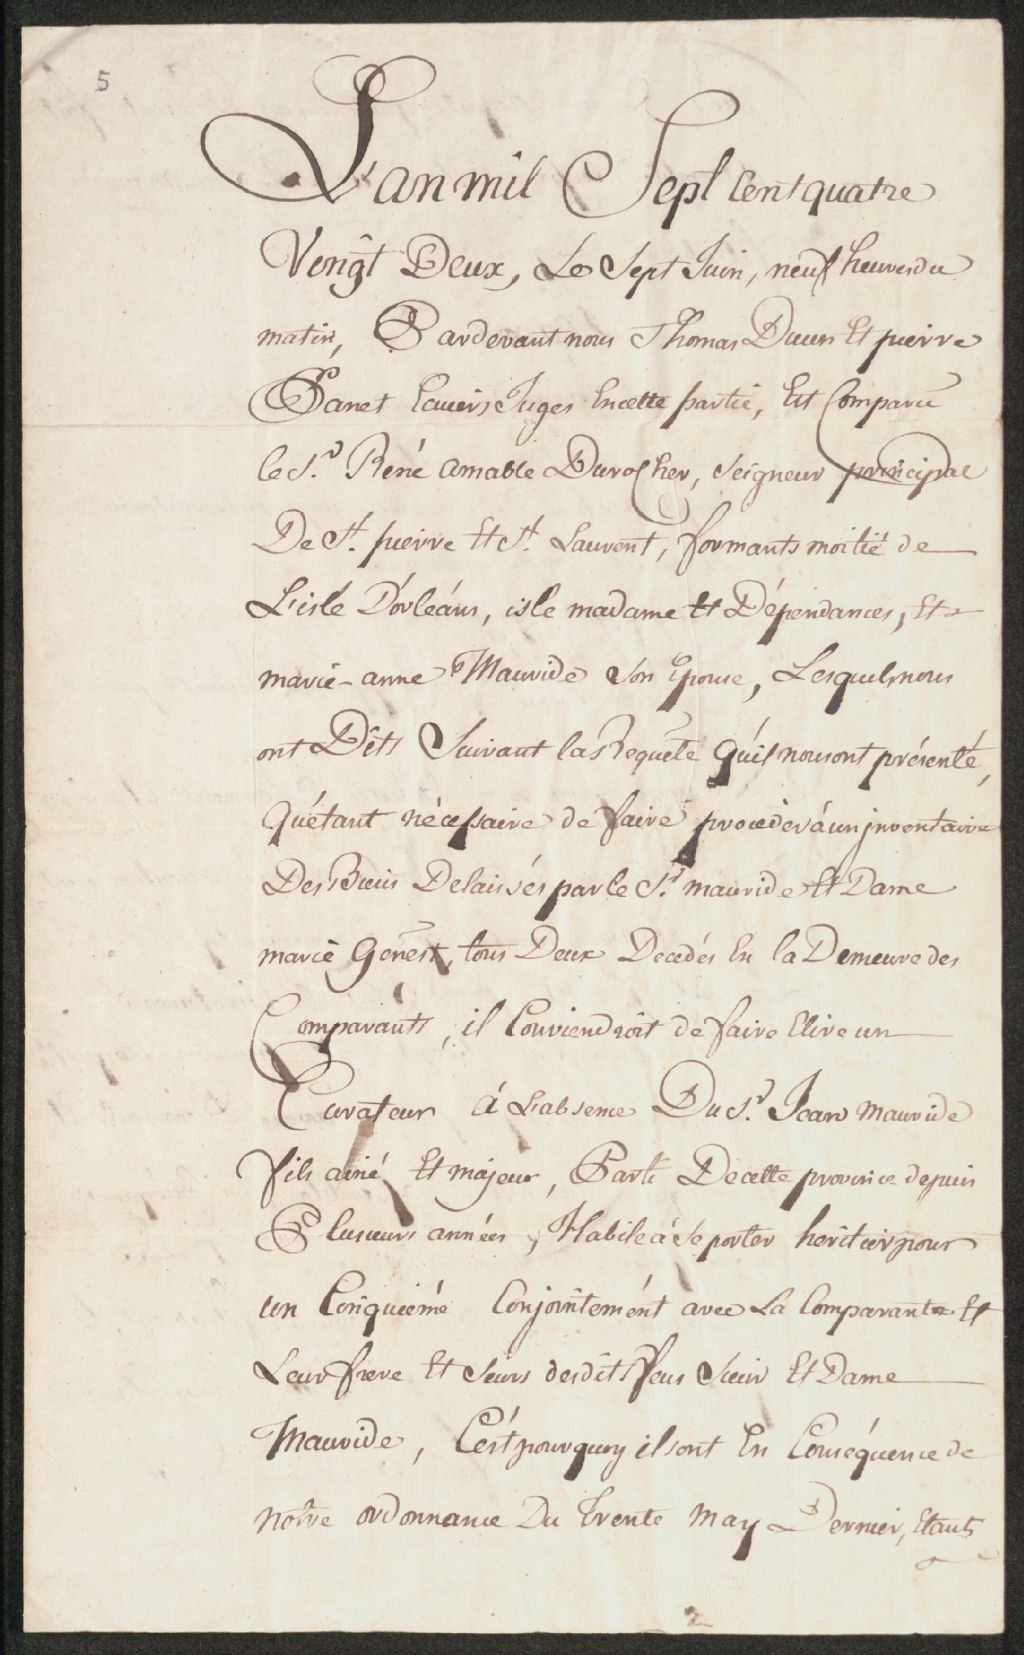 5
L'an mil Sept Cent quatre
Vengt Deux, Le Sept Juin, neuf heures du
matin, Pardevant nous Thomas Dunn Et pierre
Panet Ecuiers Juges En cette partie, Est Comparu
le Sr. René amable Durocher, Seigneur principal
De St. pierre Et St. Laurent, formants moitié de
L'isle D'orléans, isle madame Et Dépendances, Et
marie-anne Mauvide Son Epouse, Lesquels nous
ont Dits Suivant la Requête Qu'ils nous ont présenté,
Qu'étant nécessaire de faire procèder à un jnventaire
Des Biens Delaissés par le Sr. mauvide Et Dame
marie Genest, tous Deux Decedés En la Demeure des
Comparants, il Conviendroit de faire Elire un
Curateur á L'absence Du Sr. Jean Mauvide
fils ainé Et majeur, Parti De cette province depuis
Plusieurs années, Habile á Se porter heritier pour
un Cinquiéme Conjointemént avec La Comparante Et
Leur frere Et Seurs desdits feus Sieur Et Dame
Mauvide, C'est pourquoy ils ont En Conséquence de
Notre ordonnance Du Trente May Dernier, Etants
2